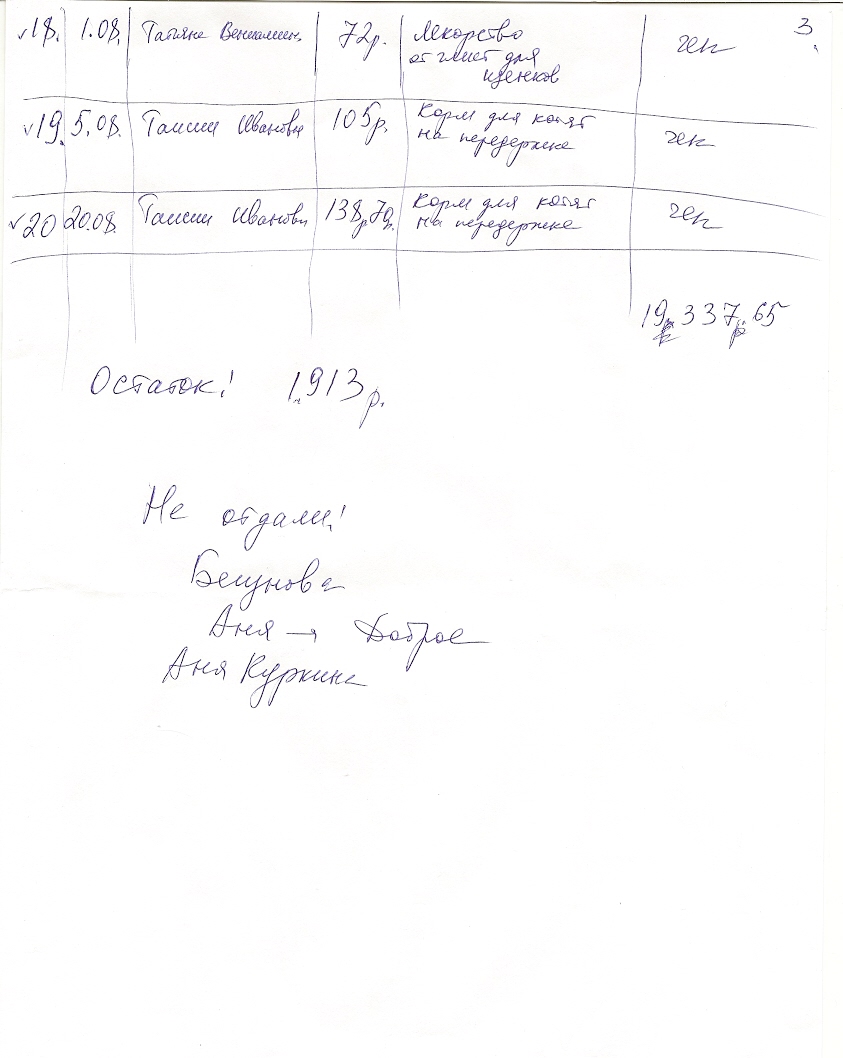 3.
√18. 1.08. Татьяне Вениамин. 72р. Лекарство от глист для щенков чек
√19. 5.08. Таисии Ивановн 105р. Корм для котят на передержке чек
√20 20.08. Таисии Ивановн 138р.70р. Корм для котят на передержке чек
19.337р.65
Остаток! 1.913р.
Не отдали!
Бегунова
Аня → Доброе
Аня Куркина